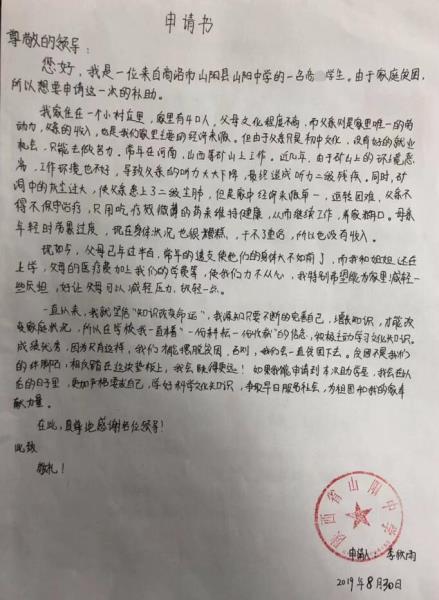 申请书
尊敬的领导：
您好，我是一位来自商洛市山阳县山阳中学的一名高 学生。由于家庭贫困，
所以想要申请这一次的补助。
我家住在一个小村庄里，家里有4口人，父母文化程度不高，而父亲则是家里唯一的劳
动力，父亲的收入，也是我们家里主要的经济来源。但由于父亲只是初中文化，没有好的就业
机会，只能去做苦力。常年在河南，山西等矿山上工作。近几年，由于矿山上的环境恶
劣，工作环境也不好，导致父亲的听力大大下降，最终造成听力二级残疾。同时，矿
洞中的灰尘过大，使父亲患上了二级尘肺，但是家中经济来源单一，运转困难，父亲不
得不保守治疗，只用吃疗效微薄的药来维持健康，从而继续工作，养家糊口。母亲
年轻时劳累过度，现在身体状况也很糟糕，干不了重活，所以也没有收入。
现如今，父母已年过半百，常年的透支使他们的身体大不如前了，而我和姐姐还在
上学，父母的医疗费加上我们的学费等，使他们力不从心，我特别希望能为家里减轻一
些负担，好让父母可以减轻压力，轻一点。
一直以来，我就坚信“知识改变命运”，我深知只要不断的完善自己，增长知识，才能改
变家庭状况，所以在学校我一直本着“一份耕耘一份收获”的信念，积极主动学习文化知识。
成绩优秀，因为只有这样，我们才能摆脱贫困，否则，我们会一直贫困下去。贫困不是我们
的绊脚石，相反踏在这块垫板上，我会跃得更远！如果我能申请到本次助学金，我会在以
后的日子里，更加严格要求自己，学好科学文化知识，争取早日服务社会，为祖国和我的家乡
献力量。
在此，真挚地感谢各位领导！
此致
敬礼！
陕西省山阳中学
申请人：李欣雨
2019年8月30日